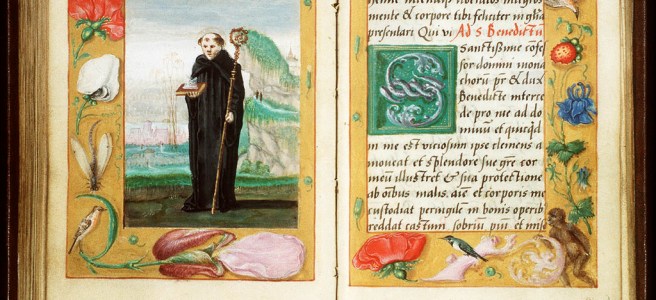 mente & corpore tibi feliciter in gl̃ia
presentari Qui vi Ad S. Benedictũ
Sanctißime cõfes
sor domini mona
chorũ pr̃ & dux
Benedicte interce
de pro me ad do
minũ et quicqd
in me est viciosum ipse clemens a
moueat et splendore sue gre cor
meũ illustret & sua protectione
ab oībus malis, aīe et corporis me
custodiat peruigilẽ in bonis operib
reddat castum sobriũ, piũ et mise